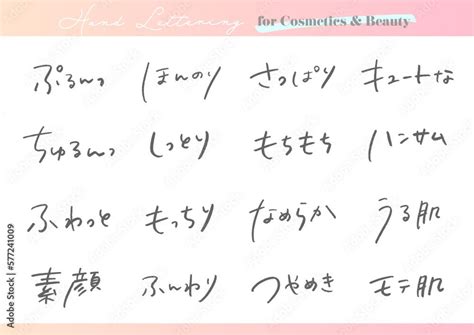 Hand Lettering for Cosmetics & Beauty
ぷるんっ ほんのり さっぱり キュートな
ちゅるんっ しっとり もちもち ハンサム
ふわっと もっちり なめらか うる肌
素顔 ふんわり つやめき モテ肌
Adobe Stock | #577241009